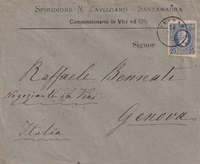 SPIRIDIONE N. ZAVIZZIANO - SANTAMAURA
Commissionario in Vini ed Olii
Signor
Raffaele Bonnati
Negoziante in Vini
Genova
Italia